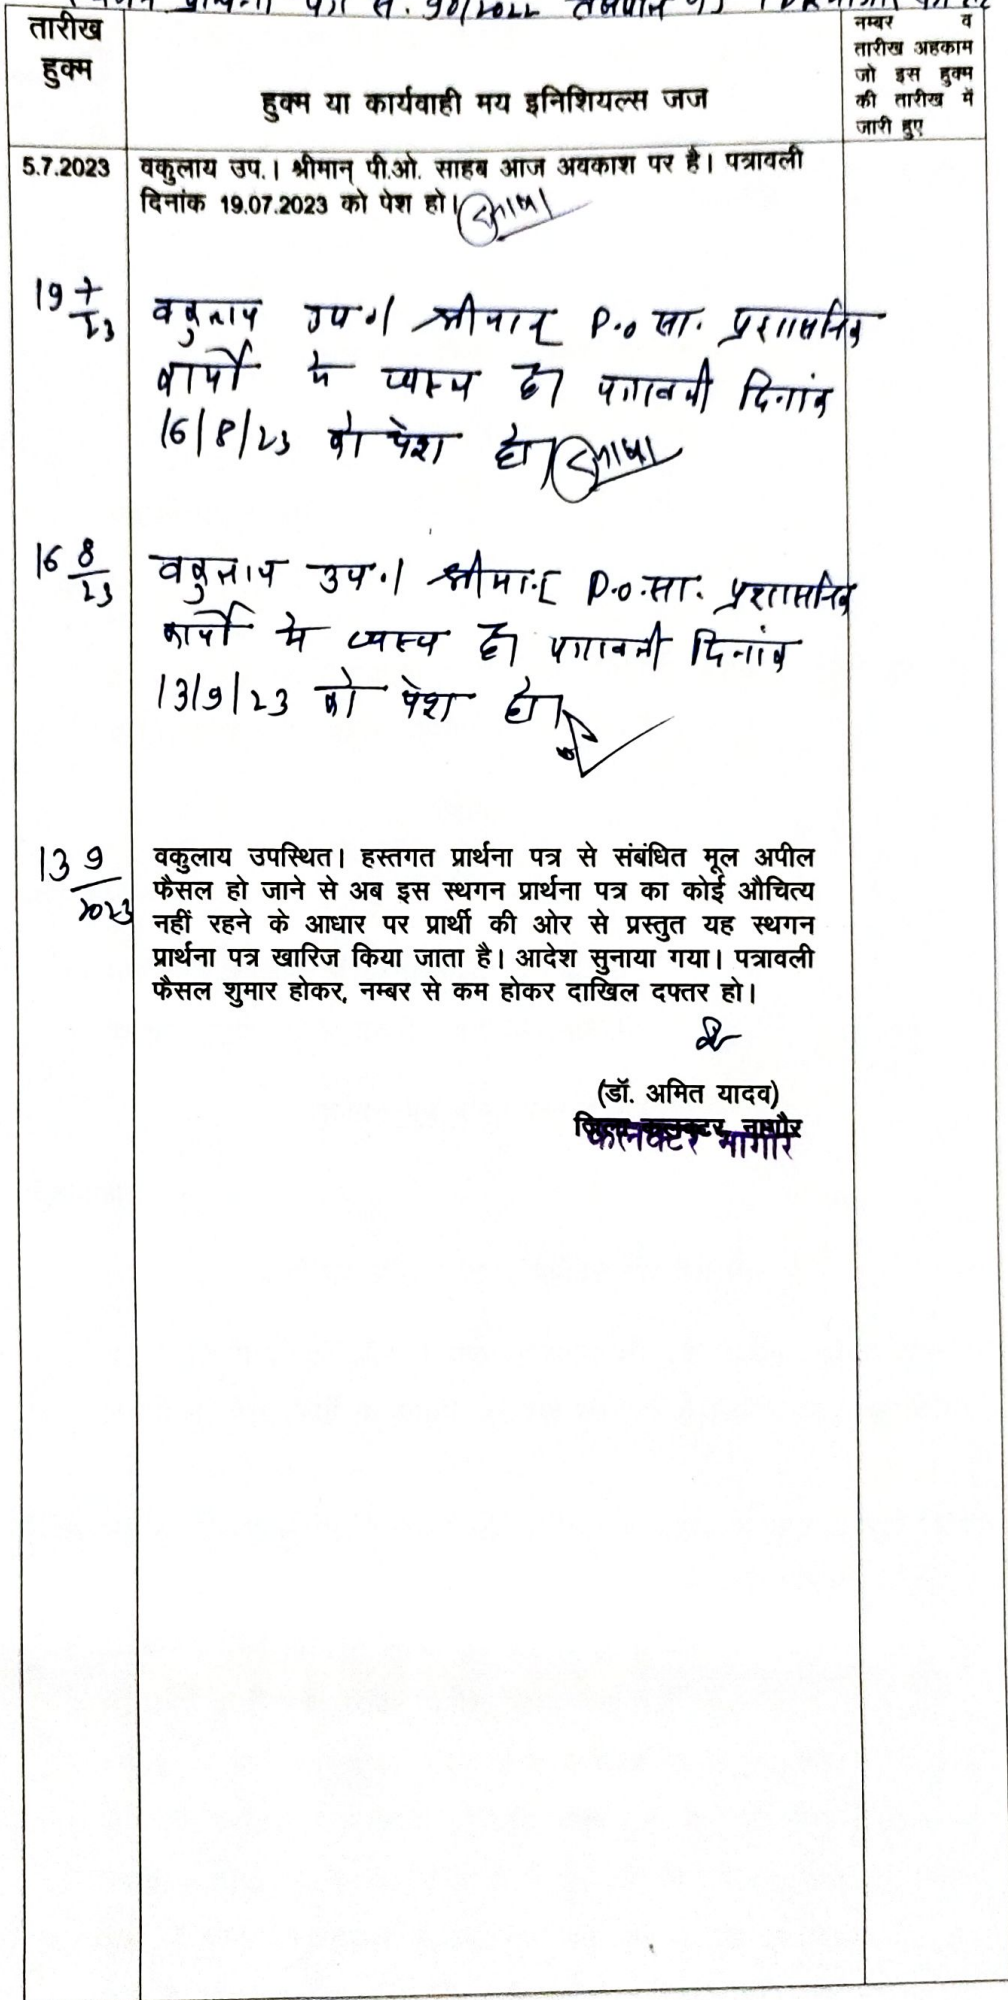 तारीख
हुक्म
हुक्म या कार्यवाही मय इनिशियल्स जज
नम्बर व
तारीख अहकाम
जो इस हुक्म
की तारीख में
जारी हुए
5.7.2023 वकुलाय उप.। श्रीमान् पी.ओ. साहब आज अवकाश पर है। पत्रावली
दिनांक 19.07.2023 को पेश हो।
19 7/23 वकुलाय उप.। श्रीमान् P.o सा. प्रशासनिक
कार्यो मे व्यस्य है। पत्रावली दिनांक
16/8/23 को पेश हो।
16 8/23 वकुलाय उप.। श्रीमान् P.o.सा. प्रशासनिक
कार्यो मे व्यस्य है। पत्रावली दिनांक
13/9/23 को पेश हो।
13 9/2023 वकुलाय उपस्थित। हस्तगत प्रार्थना पत्र से संबंधित मूल अपील
फैसल हो जाने से अब इस स्थगन प्रार्थना पत्र का कोई औचित्य
नहीं रहने के आधार पर प्रार्थी की ओर से प्रस्तुत यह स्थगन
प्रार्थना पत्र खारिज किया जाता है। आदेश सुनाया गया। पत्रावली
फैसल शुमार होकर, नम्बर से कम होकर दाखिल दफ्तर हो।
(डॉ. अमित यादव)
जिला कलक्टर, नागौर
कलक्टर नागौर